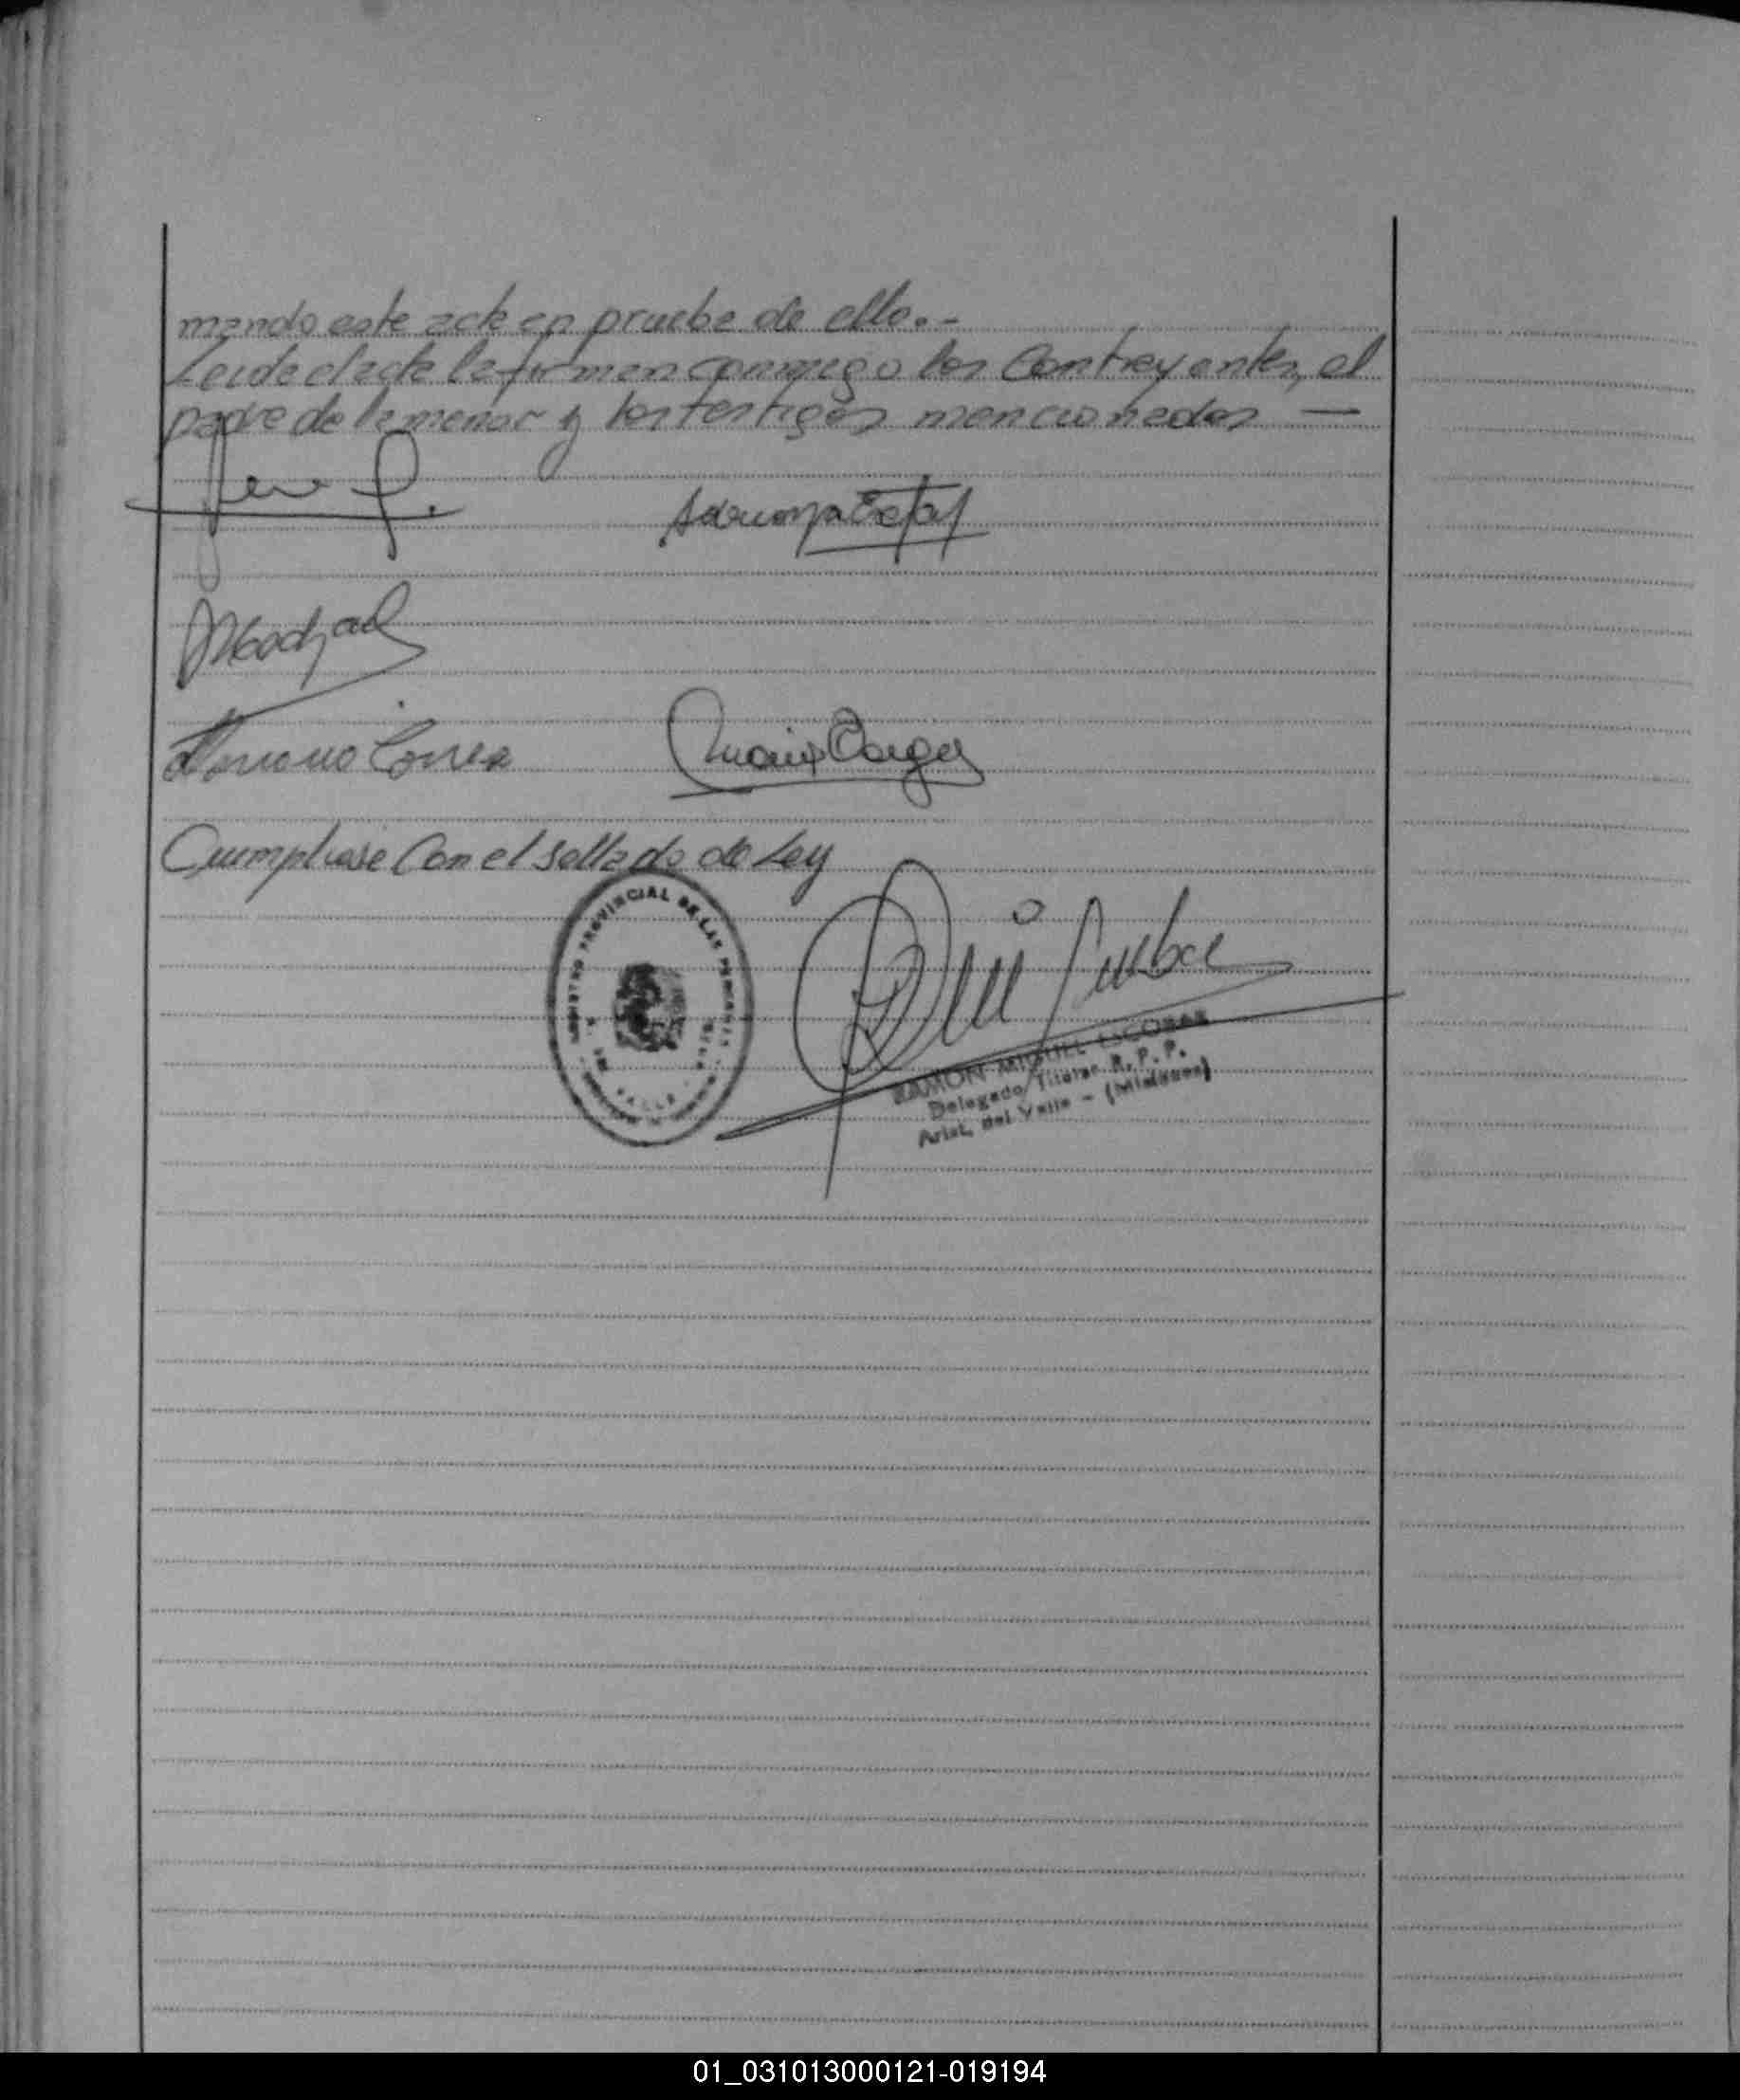 mando este acta en prueba de ello.-
Leida el acta la firman conmigo los Contrayentes, el
padre de la menor y los testigos mencionados —
Cumpliose Con el sellado de Ley
REGISTRO PROVINCIAL DE LAS PERSONAS
VALLE
RAMON MIGUEL ESCOBAR
Delegado Titular R. P. P.
Arist. del Valle - (Misiones)
01_031013000121-019194